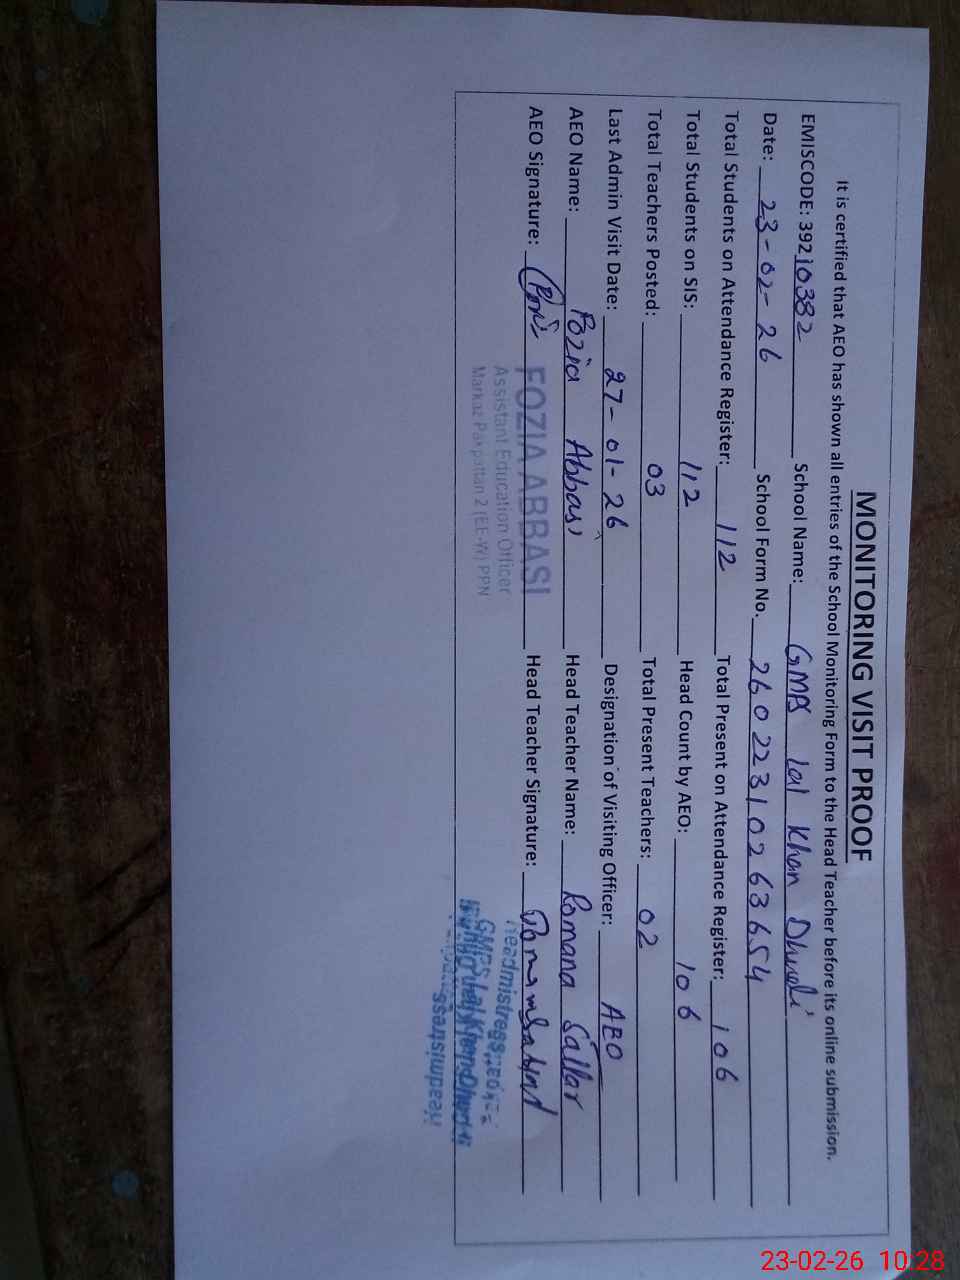 MONITORING VISIT PROOF
It is certified that AEO has shown all entries of the School Monitoring Form to the Head Teacher before its online submission.
EMISCODE: 39210382 School Name: GMPS Lal Khan Dhudi
Date: 23-02-26 School Form No. 26022310263654
Total Students on Attendance Register: 112 Total Present on Attendance Register: 106
Total Students on SIS: 112 Head Count by AEO: 106
Total Teachers Posted: 03 Total Present Teachers: 02
Last Admin Visit Date: 27-01-26 Designation of Visiting Officer: AEO
AEO Name: Fozia Abbasi Head Teacher Name: Romana Sattar
AEO Signature: Head Teacher Signature:
FOZIA ABBASI
Assistant Education Officer
Markaz Pakpattan 2 (EE-W) PPN
Headmistress
GMPS Lal Khan
Headmistress
23-02-26 10:28